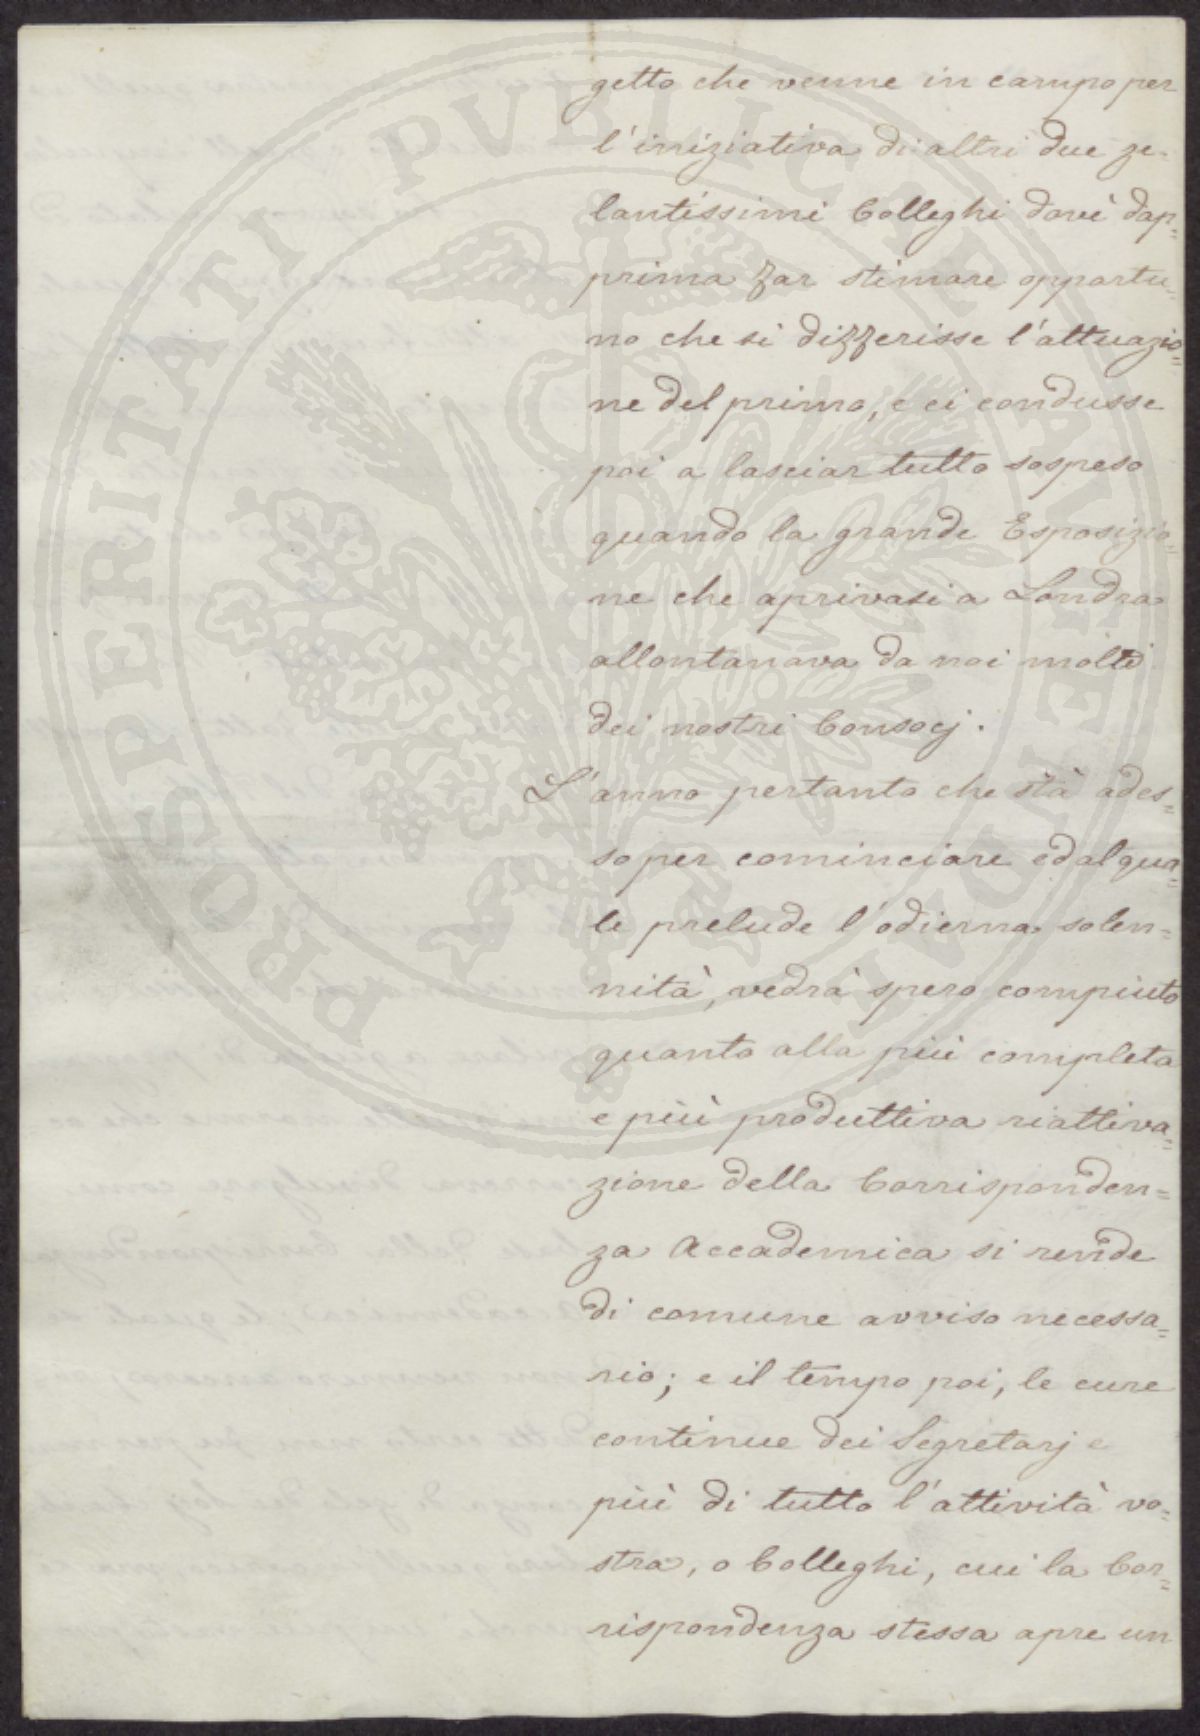 getto che venne in campo per
l'iniziativa di altri due ze-
lantissimi Colleghi dovè dap=
prima far stimare opportu=
no che si differisse l'attuazio=
ne del primo, e ci condusse
poi a lasciar tutto sospeso
quando la grande Esposizio=
ne che aprivasi a Londra
allontanava da noi molti
dei nostri Consocj.
L'anno pertanto che stà ades=
so per cominciare ed al qua=
le prelude l'odierna solen=
nità, vedrà spero compiuto
quanto alla più completa
e più produttiva riattiva=
zione della Corrisponden=
za Accademica si rende
di comune avviso necessa=
rio; e il tempo poi, le cure
continue dei Segretarj e
più di tutto l'attività vo=
stra, o Colleghi, cui la Cor=
rispondenza stessa apre un
PROSPERITATI PVBLICAE AVGENDAE